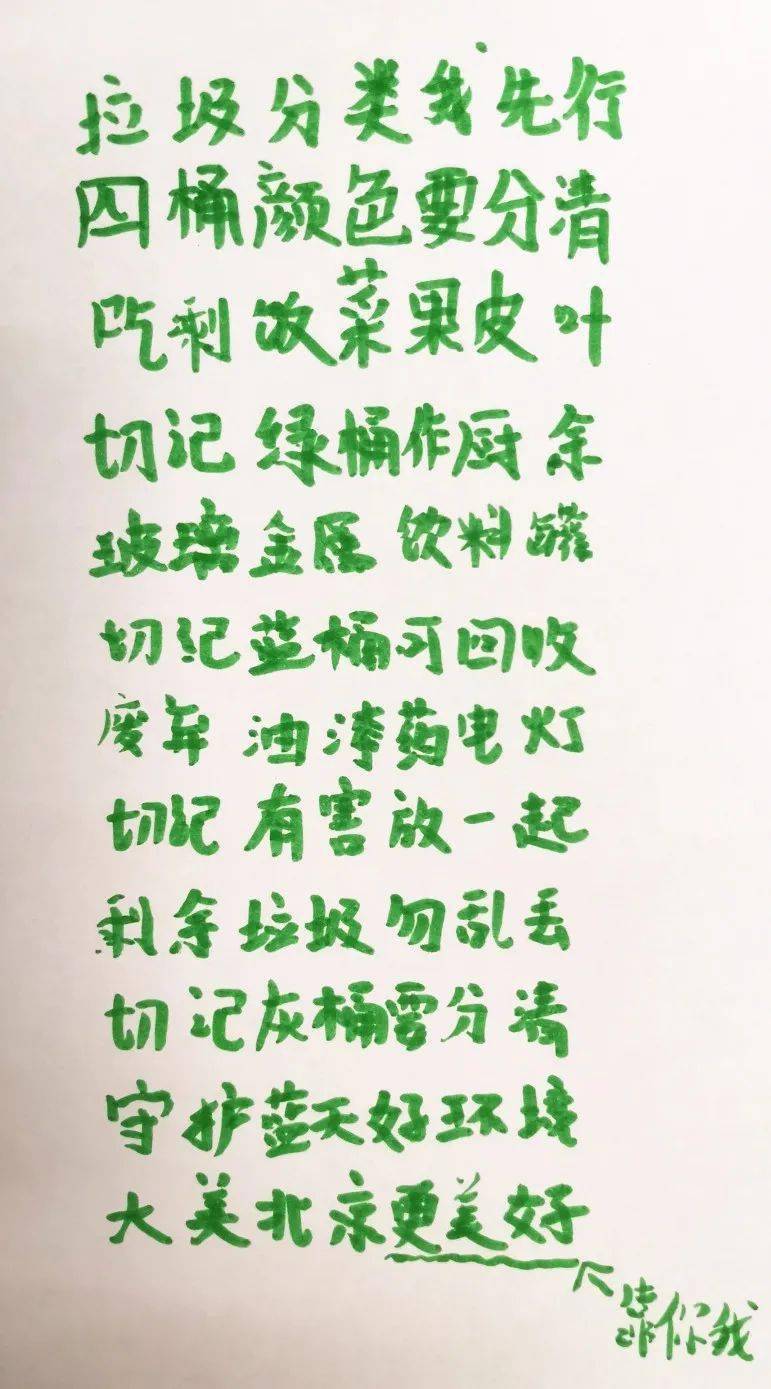 垃圾分类我先行
四桶颜色要分清
吃剩饭菜果皮叶
切记绿桶作厨余
玻璃金属饮料罐
切记蓝桶可回收
废弃油漆药电灯
切记有害放一起
剩余垃圾勿乱丢
切记灰桶要分清
守护蓝天好环境
大美北京更美好
靠你我